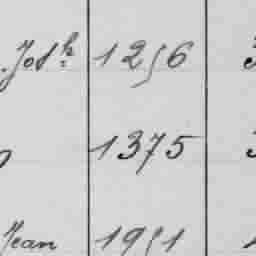 Josh 1256
1375
Jean 1951